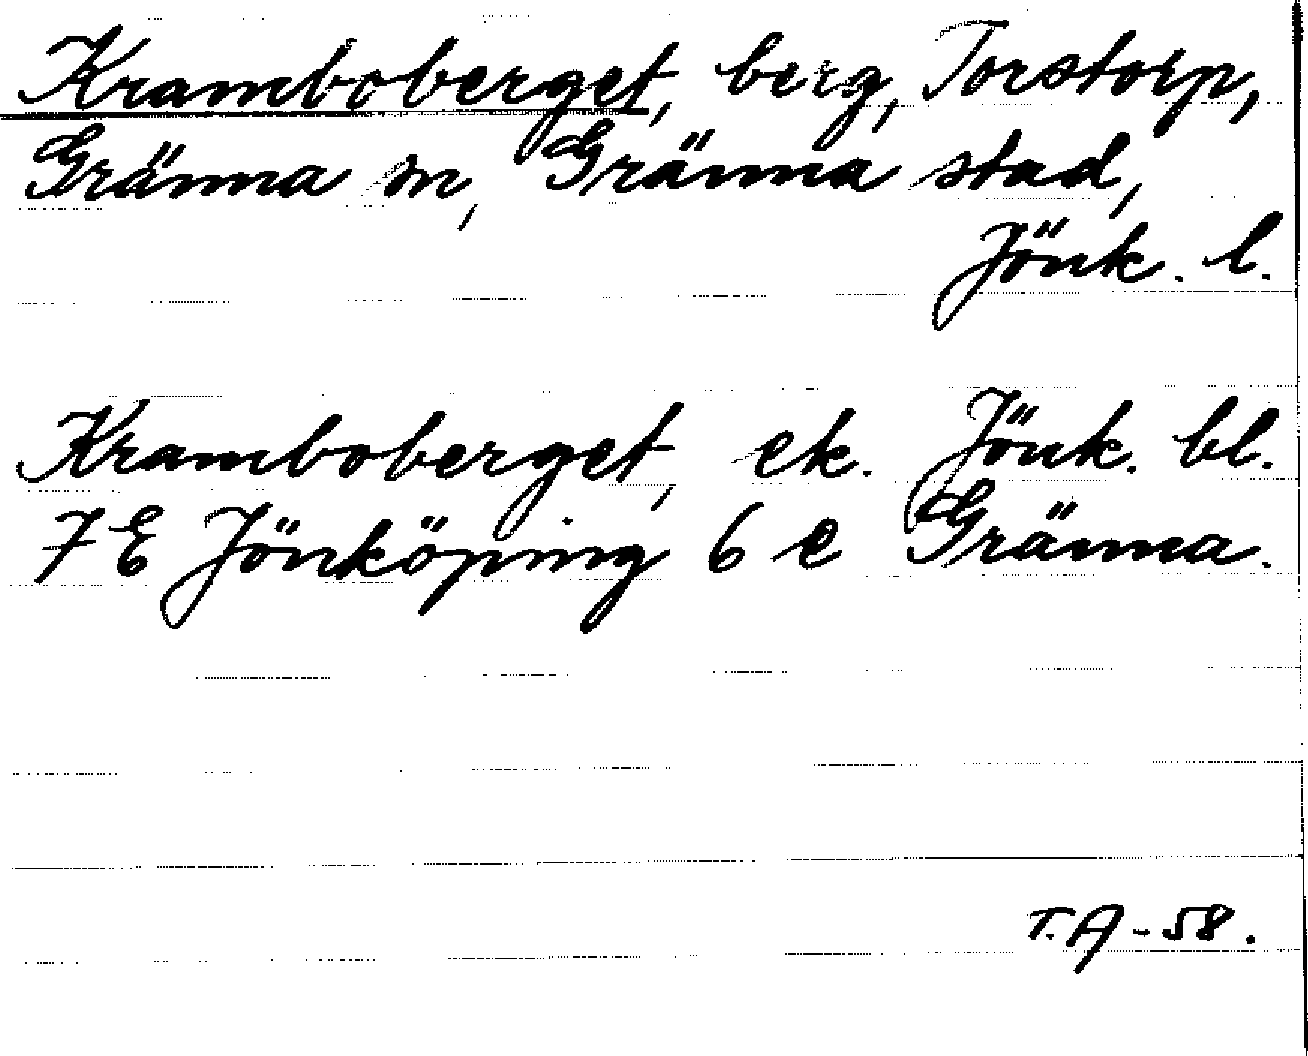 Kramboberget, berg, Torstorp,
Gränna sn, Gränna stad,
Jönk. l.
Kramboberget, ek. Jönk. bl.
7 E Jönköping 6 e Gränna.
T.A-58.